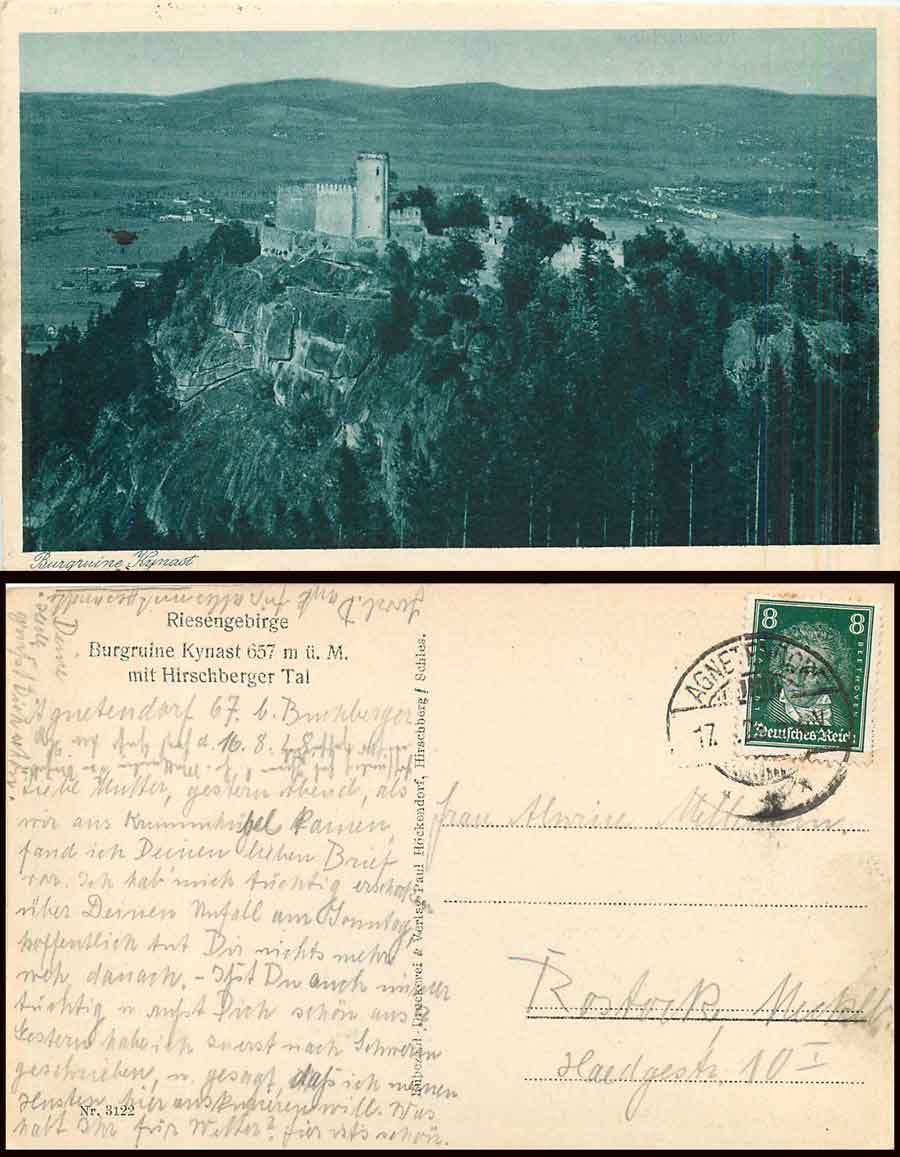 Burgruine Kynast
Riesengebirge
Burgruine Kynast 657 m ü. M.
mit Hirschberger Tal
Agnetendorf 67. b. Buchberger
d. 16. 8.
Liebe Mutter, gestern abend, als
wir aus Krummhübel kamen,
fand ich Deinen lieben Brief
vor. Ich hab' mich tüchtig erschrocken
über Deinen Unfall am Sonntag,
hoffentlich tut Dir nichts mehr
weh danach. – Ißt Du auch immer
tüchtig u. ruhst Dich schön aus?
Gestern habe ich zuerst nach Schwerin
geschrieben, u. gesagt, daß ich meinen
Husten hier auskurieren will. Was
habt Ihr für Wetter? Hier ists schön.
Nr. 3122
Rübezahl Druckerei & Verlag Paul Höckendorf, Hirschberg / Schles.
8 8
BEETHOVEN
Deutsches Reich
AGNETENDORF
17.
Frau Alwine
Rostock Mecklb.
Haedgestr. 10 I